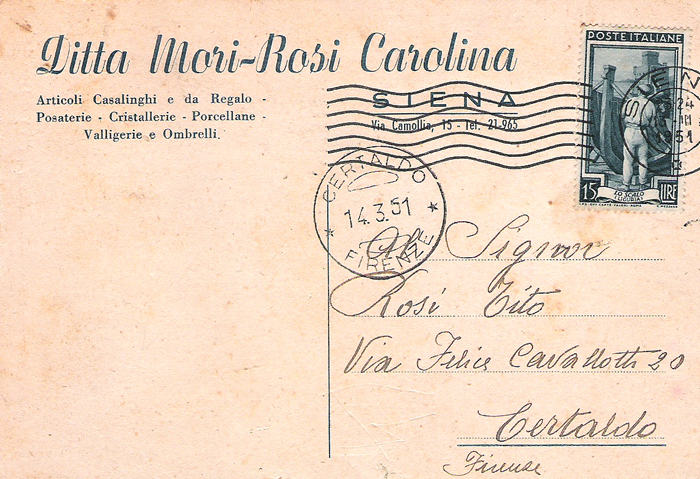 Ditta Mori-Rosi Carolina
Articoli Casalinghi e da Regalo -
Posaterie - Cristallerie - Porcellane -
Valligerie e Ombrelli.
SIENA
Via Camollia, 15 - Tel. 21-965
POSTE ITALIANE
15 LIRE
LO SCALO
LIGURIA
SIENA
1951
CERTALDO
14.3.51
FIRENZE
Al Signor
Rosi Tito
Via Felice Cavallotti 20
Certaldo
Firenze